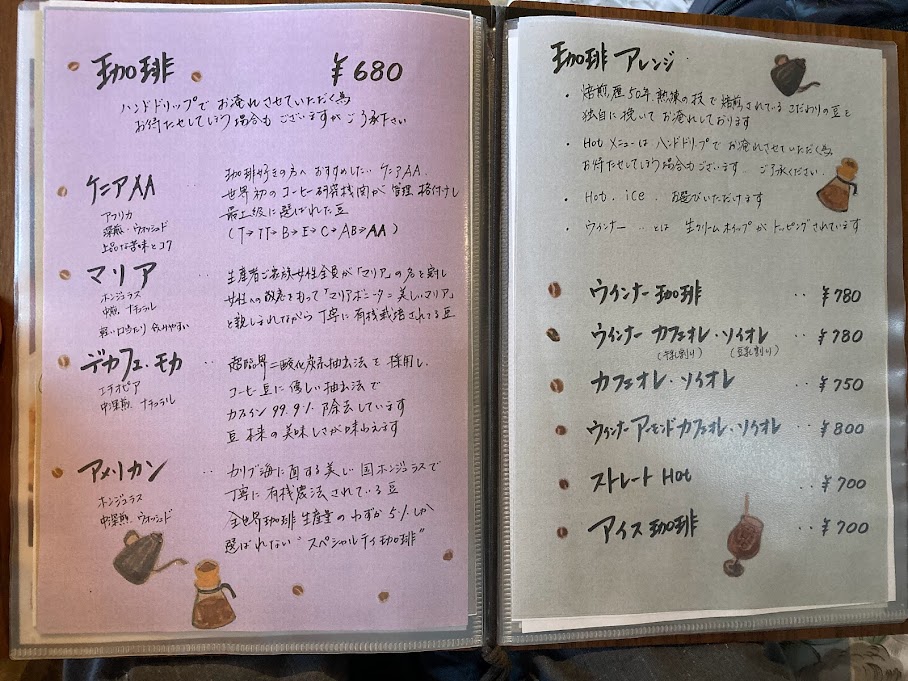 珈琲 ¥680
ハンドドリップで お淹れさせていただく為
お待たせしてしまう場合も ございますが ご了承下さい
ケニアAA ‥
アフリカ
深煎、ウォッシュド
上品な苦味とコク
珈琲好きの方へ おすすめしたい ケニアAA.
世界初のコーヒー研究機関が 管理 格付けし
最上級に選ばれた豆
(T→TT→B→E→C→AB→AA)
マリア ‥
ホンジュラス
中煎、ナチュラル
軽い口当たり 飲みやすい
生産者ご家族女性全員が「マリア」の名を
女性への敬意をもって「マリアボニータ＝美しいマリア」
と親しまれながら 丁寧に有機栽培されてる豆
デカフェ・モカ ‥
エチオピア
中深煎、ナチュラル
超臨界二酸化炭素抽出法を 採用し、
コーヒー豆に優しい抽出法で
カフェイン99.9% 除去しています
豆本来の美味しさが味わえます
アメリカン ‥
ホンジュラス
中深煎、ウォッシュド
カリブ海に面する美しい国ホンジュラスで
丁寧に有機農法されている豆
全世界珈琲生産量のわずか5%しか
選ばれない "スペシャルティ珈琲"
珈琲 アレンジ
・焙煎歴50年、熟練の技で焙煎されている こだわりの豆を
独自に挽いて お淹れしております
・Hot メニューは ハンドドリップで お淹れさせていただく為
お待たせしてしまう場合もございます‥ ご了承ください.
・Hot. ice. お選びいただけます
・ウインナー‥とは 生クリームホイップが トッピングされています
ウインナー 珈琲 ‥ ¥780
ウインナー カフェオレ・ソイオレ ‥ ¥780
(牛乳割り) (豆乳割り)
カフェオレ・ソイオレ ‥ ¥750
ウインナーアーモンドカフェオレ・ソイオレ ‥ ¥800
ストレート Hot ‥ ¥700
アイス 珈琲 ‥ ¥700